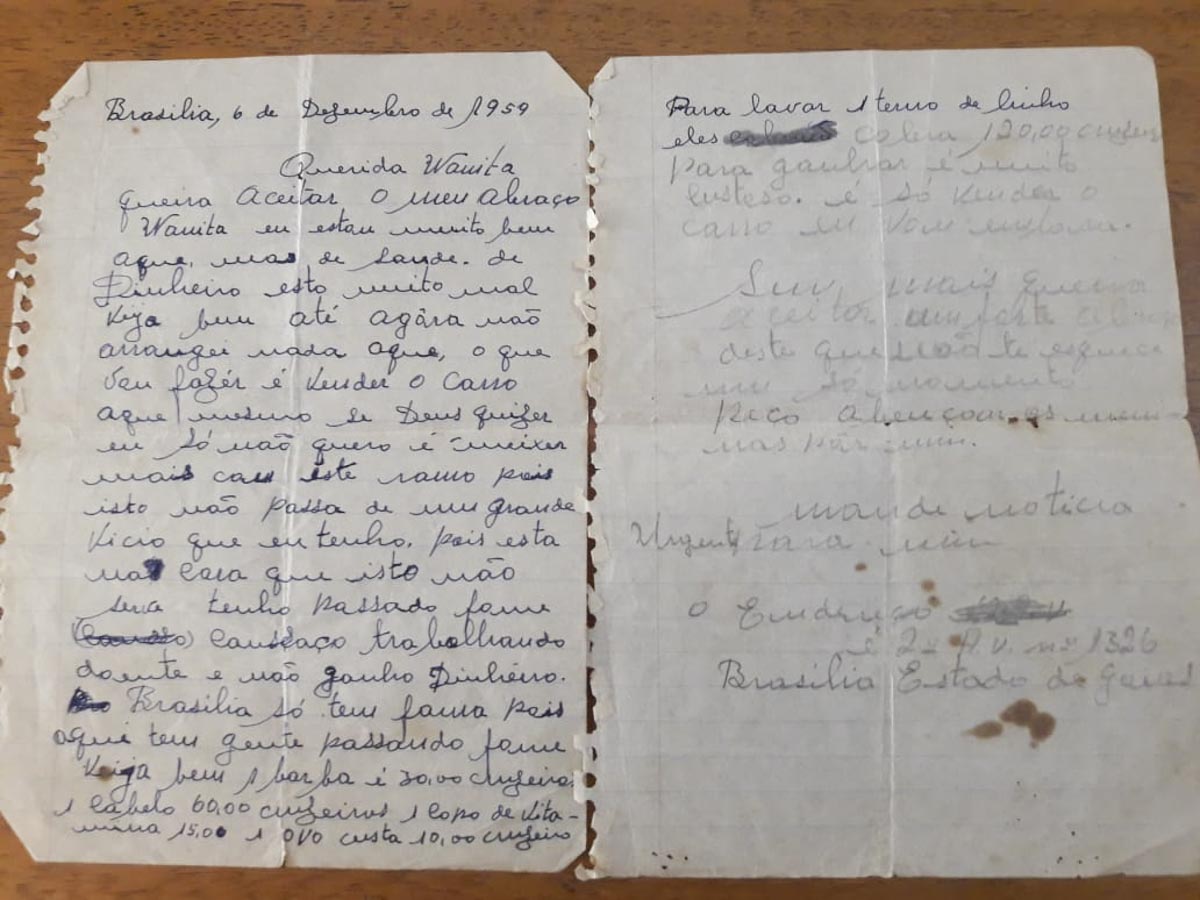 Brasilia, 6 de Dezembro de 1959
Querida Wanita
queira aceitar o meu abraço
Wanita eu estou muito bem
aque, mas de saude. de
Dinheiro esto muito mal
Veja bem até agôra não
arrangei nada aque, o que
vou fazêr é vender o carro
aque mesmo se Deus quizer
eu só não quero é meixer
mais com êste ramo pois
isto não passa de um grande
vicio que eu tenho. pois esta
na cara que isto não
seria tenho passado fome
canssaço trabalhando
doente e não ganho Dinheiro.
Brasilia só tem fama pois
aqui tem gente passando fome
Veija bem 1 barba é 30,00 cruzeiros
1 cabelo 60,00 cruzeiros 1 copo de vita-
mina 15,00 1 ovo custa 10,00 cruzeiro
Para lavar 1 terno de linho
eles cobra 120,00 cruzeiro
para ganhar é muito
custoso. é só vender o
carro eu vou embora.
Sem mais queira
aceitar um forte abraço
deste que não te esquece
um só momento
Peço abençoar as meni-
nas pôr mim.
mande noticia
Urgente para mim
O Endereço
é 2a A.V. nº 1326
Brasilia Estado de Goias